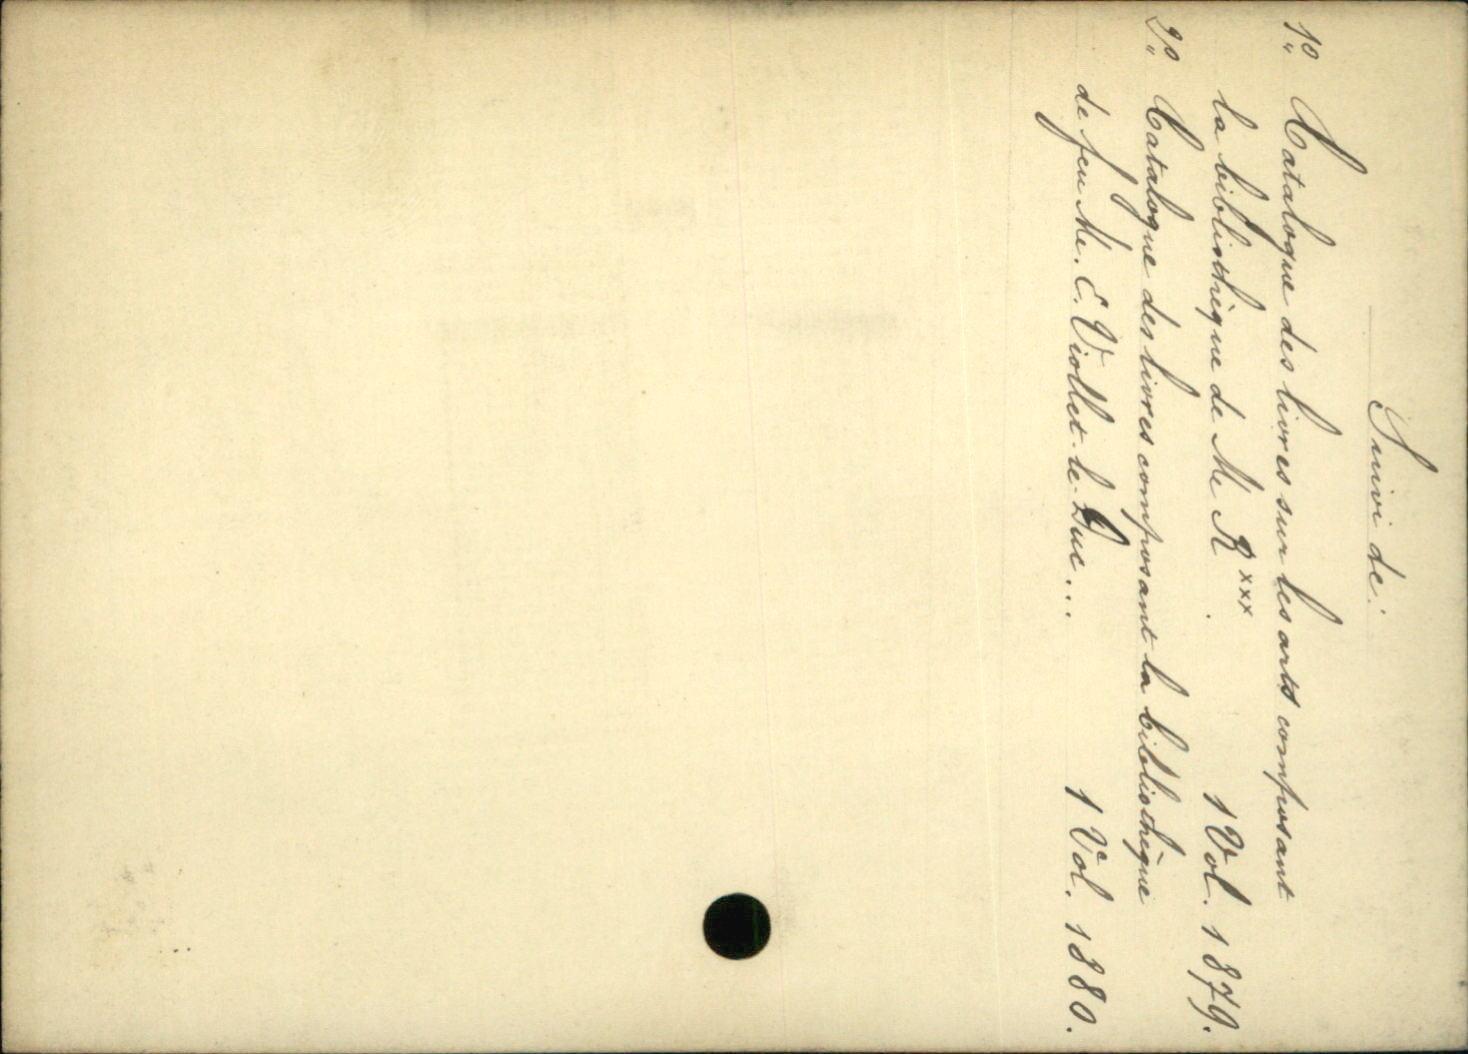 Suivi de:
1º Catalogue des livres sur les arts composant
la bibliothèque de Me R xxx. 1 Vol. 1879.
2º Catalogue des livres composant la bibliothèque
de feu Me. E. Viollet-le-Duc... 1 Vol. 1880.